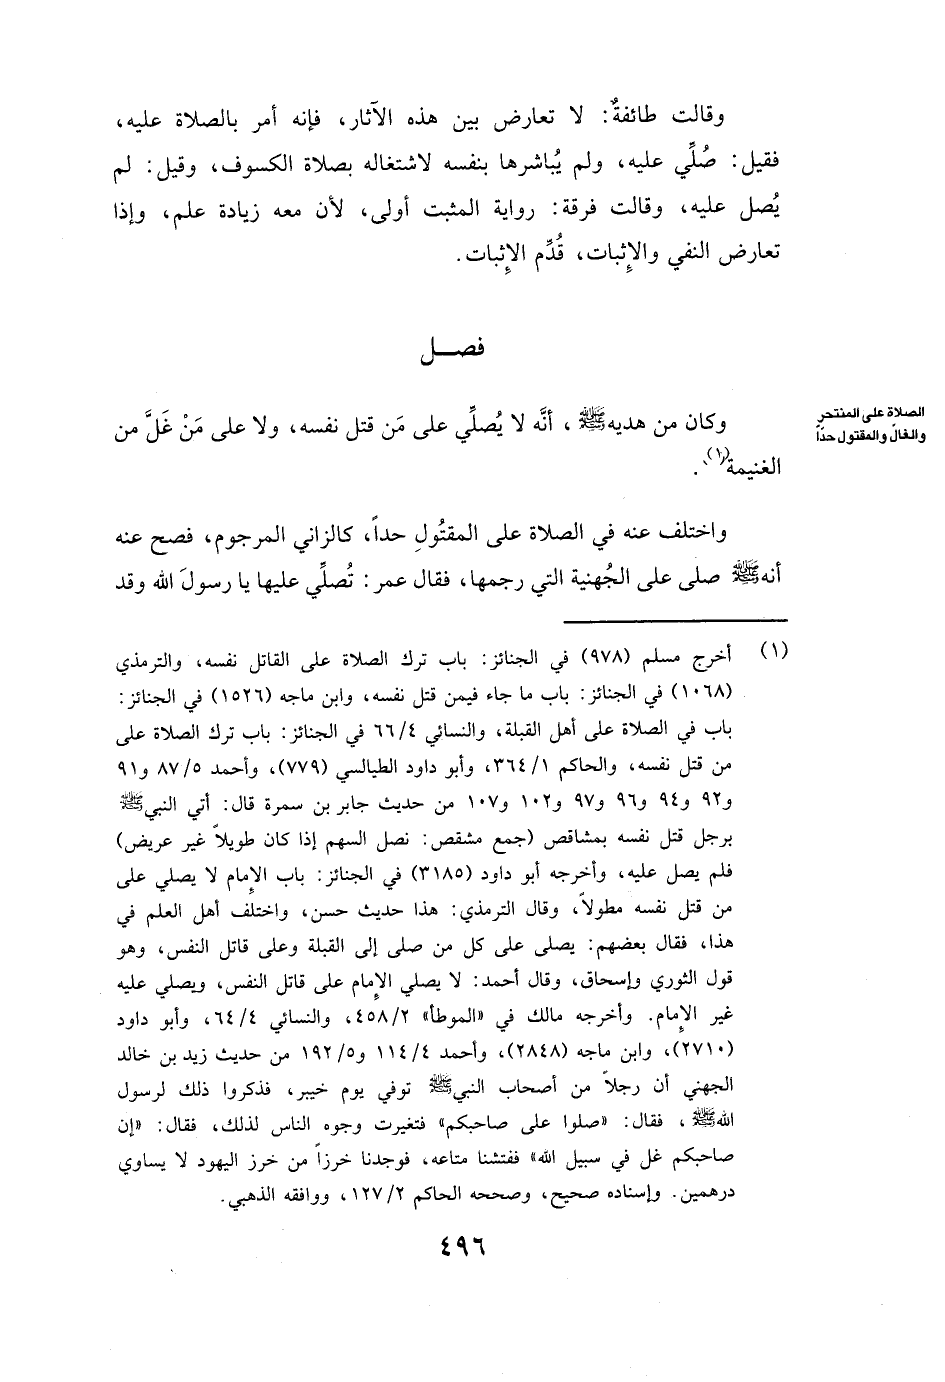 وقالت طائفةٌ: لا تعارض بين هذه الآثار، فإنه أمر بالصلاة عليه،
فقيل: صُلِّي عليه، ولم يُباشرها بنفسه لاشتغاله بصلاة الكسوف، وقيل: لم
يُصل عليه، وقالت فرقة: رواية المثبت أولى، لأن معه زيادة علم، وإذا
تعارض النفي والإِثبات، قُدِّم الإِثبات.
فصـــل
الصلاة على المنتحر
والغالّ والمقتول حدّاً
وكان من هديه ﷺ، أنَّه لا يُصلِّي على مَن قتل نفسه، ولا على مَنْ غَلَّ من
الغنيمة(١).
واختلف عنه في الصلاة على المقتُولِ حداً، كالزاني المرجوم، فصح عنه
أنه ﷺ صلى على الجُهنية التي رجمها، فقال عمر: تُصلِّي عليها يا رسولَ الله وقد
(١) أخرج مسلم (٩٧٨) في الجنائز: باب ترك الصلاة على القاتل نفسه، والترمذي
(١٠٦٨) في الجنائز: باب ما جاء فيمن قتل نفسه، وابن ماجه (١٥٢٦) في الجنائز:
باب في الصلاة على أهل القبلة، والنسائي ٦٦/٤ في الجنائز: باب ترك الصلاة على
من قتل نفسه، والحاكم ٣٦٤/١، وأبو داود الطيالسي (٧٧٩)، وأحمد ٨٧/٥ و٩١
و٩٢ و٩٤ و٩٦ و٩٧ و١٠٢ و١٠٧ من حديث جابر بن سمرة قال: أتي النبي ﷺ
برجل قتل نفسه بمشاقص (جمع مشقص: نصل السهم إذا كان طويلاً غير عريض)
فلم يصل عليه، وأخرجه أبو داود (٣١٨٥) في الجنائز: باب الإِمام لا يصلي على
من قتل نفسه مطولاً، وقال الترمذي: هذا حديث حسن، واختلف أهل العلم في
هذا، فقال بعضهم: يصلى على كل من صلى إلى القبلة وعلى قاتل النفس، وهو
قول الثوري وإسحاق، وقال أحمد: لا يصلي الإِمام على قاتل النفس، ويصلي عليه
غير الإِمام. وأخرجه مالك في «الموطأ» ٤٥٨/٢، والنسائي ٦٤/٤، وأبو داود
(٢٧١٠)، وابن ماجه (٢٨٤٨)، وأحمد ١١٤/٤ و١٩٢/٥ من حديث زيد بن خالد
الجهني أن رجلاً من أصحاب النبي ﷺ توفي يوم خيبر، فذكروا ذلك لرسول
الله ﷺ، فقال: «صلوا على صاحبكم» فتغيرت وجوه الناس لذلك، فقال: «إن
صاحبكم غل في سبيل الله» ففتشنا متاعه، فوجدنا خرزاً من خرز اليهود لا يساوي
درهمين. وإسناده صحيح، وصححه الحاكم ١٢٧/٢، ووافقه الذهبي.
٤٩٦